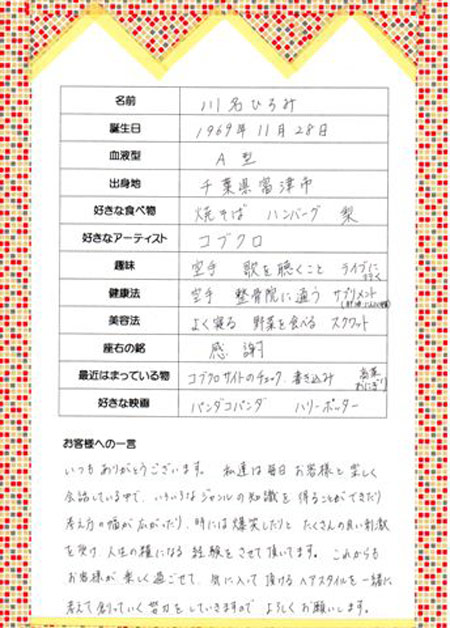 名前 川名ひろみ
誕生日 1969年11月28日
血液型 A型
出身地 千葉県富津市
好きな食べ物 焼そば ハンバーグ 梨
好きなアーティスト コブクロ
趣味 空手 歌を聴くこと ライブに行く
健康法 空手 整骨院に通う サプリメント
美容法 よく寝る 野菜を食べる スクワット
座右の銘 感謝
最近はまっている物 コブクロサイトのチェック、書き込み 高菜おにぎり
好きな映画 パンダコパンダ ハリーポッター
お客様への一言
いつもありがとうございます。 私達は毎日お客様と楽しく
会話している中で、いろいろなジャンルの知識を得ることができたり
考え方の幅が広がったり、時には爆笑したりと たくさんの良い刺激
を受け、人生の糧になる 経験をさせて頂いてます。 これからも
お客様が楽しく過ごせて、気に入って頂けるヘアスタイルを一緒に
考えて創っていく努力をしていきますので よろしくお願いします。